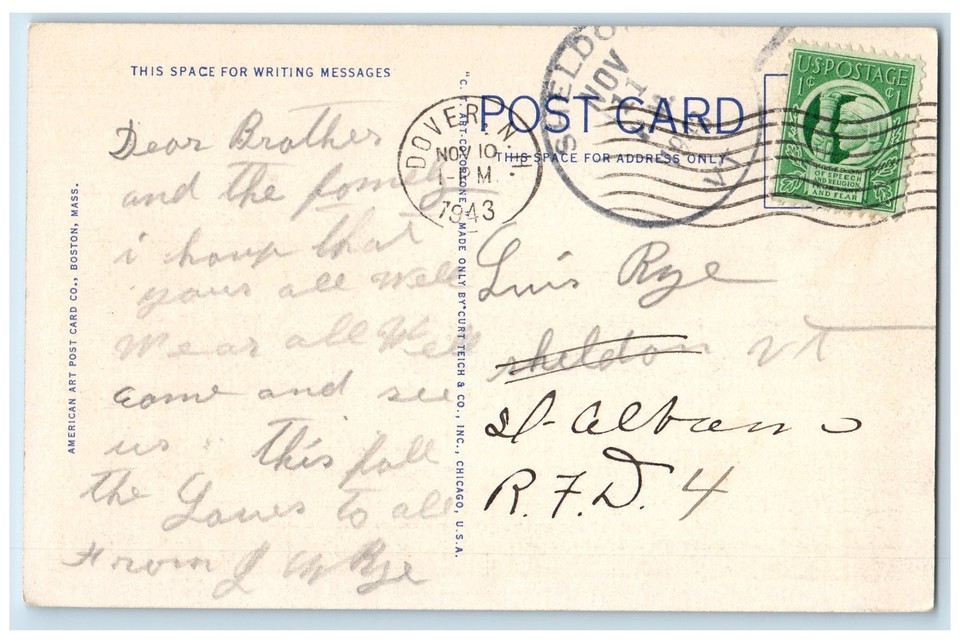 THIS SPACE FOR WRITING MESSAGES
Dear Brother
and the family
i houp that
yours all well
We ar all Well
come and see
us this fall
the Loves to all
From J W Rye
AMERICAN ART POST CARD CO., BOSTON, MASS.
"C. T. ART-COLORTONE" MADE ONLY BY CURT TEICH & CO., INC., CHICAGO, U.S.A.
POST CARD
THIS SPACE FOR ADDRESS ONLY
DOVER, N.H.
NOV 10
1943
SHELDON
NOV
11
VT
U.S. POSTAGE
1¢ ¢1
OF SPEECH
AND RELIGION
AND FEAR
Luis Rye
sheldon VT
St Albans
R.F.D. 4